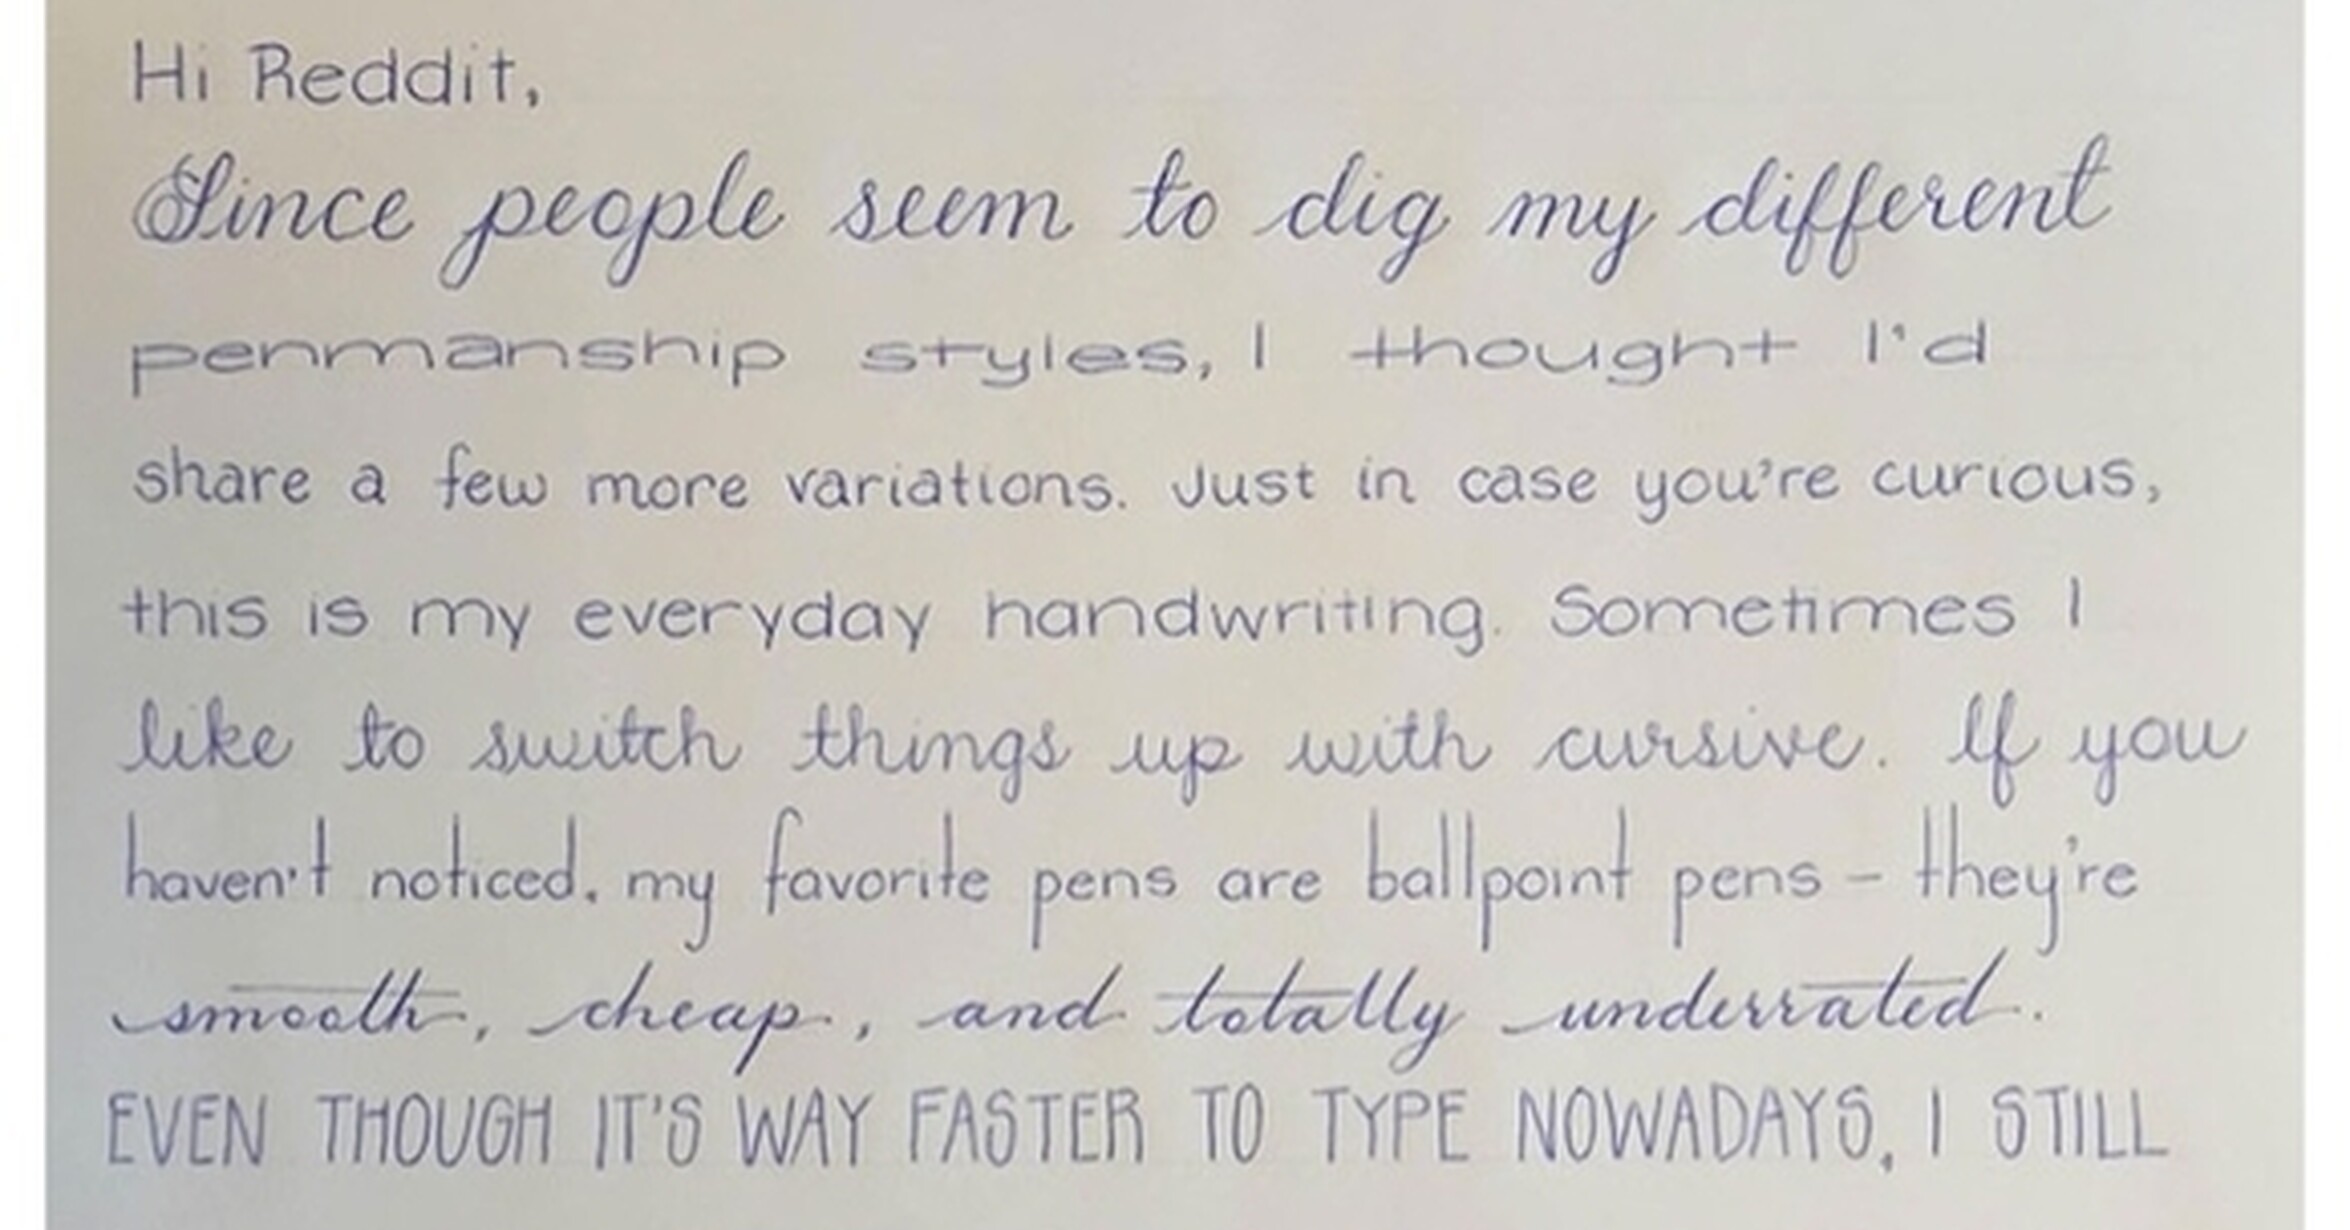 Hi Reddit,
Since people seem to dig my different
penmanship styles, I thought I'd
share a few more variations. Just in case you're curious,
this is my everyday handwriting. Sometimes I
like to switch things up with cursive. If you
haven't noticed, my favorite pens are ballpoint pens - they're
smooth, cheap, and totally underrated.
EVEN THOUGH IT'S WAY FASTER TO TYPE NOWADAYS, I STILL